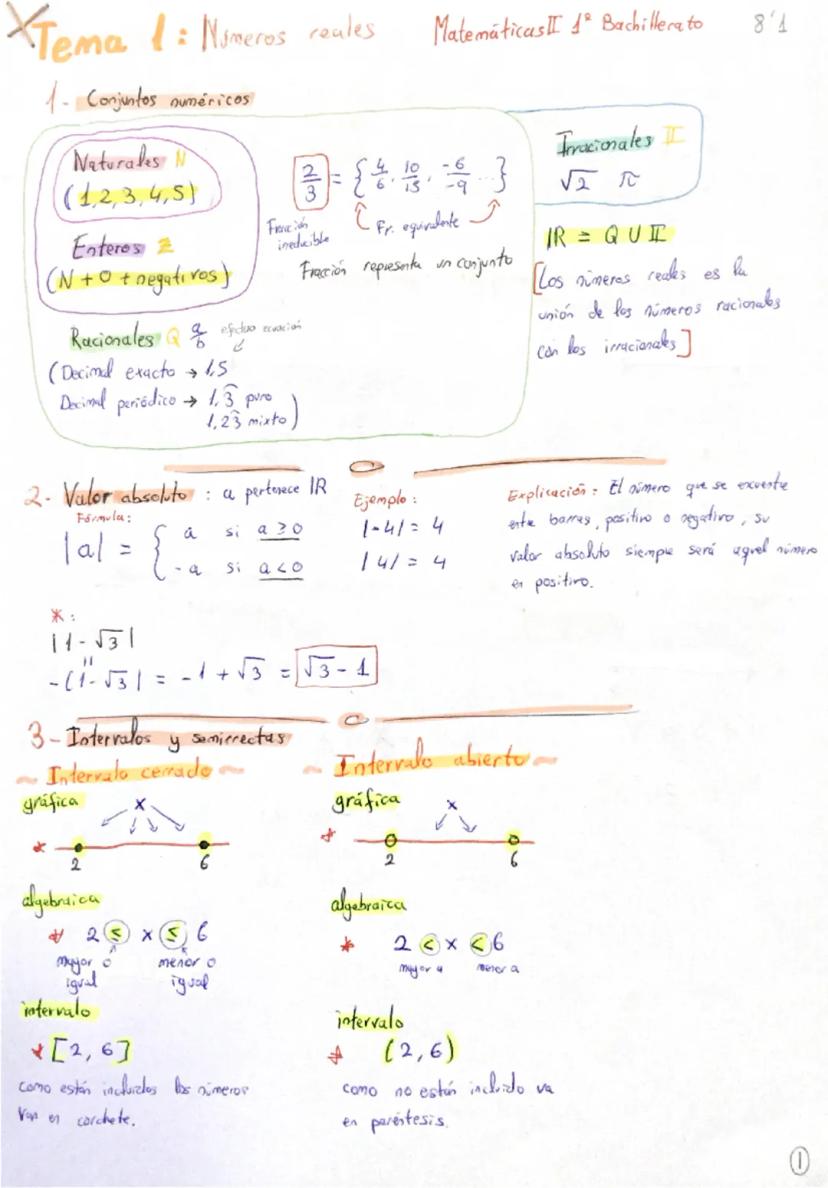 Tema 1: Números reales
Matemáticas II 1º Bachillerato
8'1
1- Conjuntos numéricos
Naturales N
(1,2,3,4,5)
Enteros Z
(N + 0 + negativos)
Racionales Q a/b efectuo ecuación
(Decimal exacto → 1,5
Decimal periódico → 1,3̂ puro
1,23̂ mixto)
2/3 = { 4/6, 10/15, -6/-9 ...}
Fracción
ineducible
Fr. equivalente
Fracción representa un conjunto
Irracionales II
√2 π
IR = Q U II
[Los números reales es la
unión de los números racionales
con los irracionales]
2- Valor absoluto : a pertenece IR
Fórmula:
|a| = { a si a ≥ 0
-a si a < 0
Ejemplo:
|-4| = 4
|4| = 4
Explicación: El número que se excuentre
entre barras, positivo o negativo, su
valor absoluto siempre será aquel número
en positivo.
*:
|1-√3|
"
-(1-√3| = -1 + √3 = √3 - 1
3- Intervalos y semirrectas
~ Intervalo cerrado ~
gráfica
x
* 2 6
algebraica
* 2 ≤ x ≤ 6
mayor o
igual
menor o
igual
intervalo
* [2, 6]
como están incluidos los números
van en corchete.
~ Intervalo abierto ~
gráfica
x
* 2 6
algebraica
* 2 < x < 6
mayor a
menor a
intervalo
* (2,6)
como no están incluido va
en paréntesis.
1